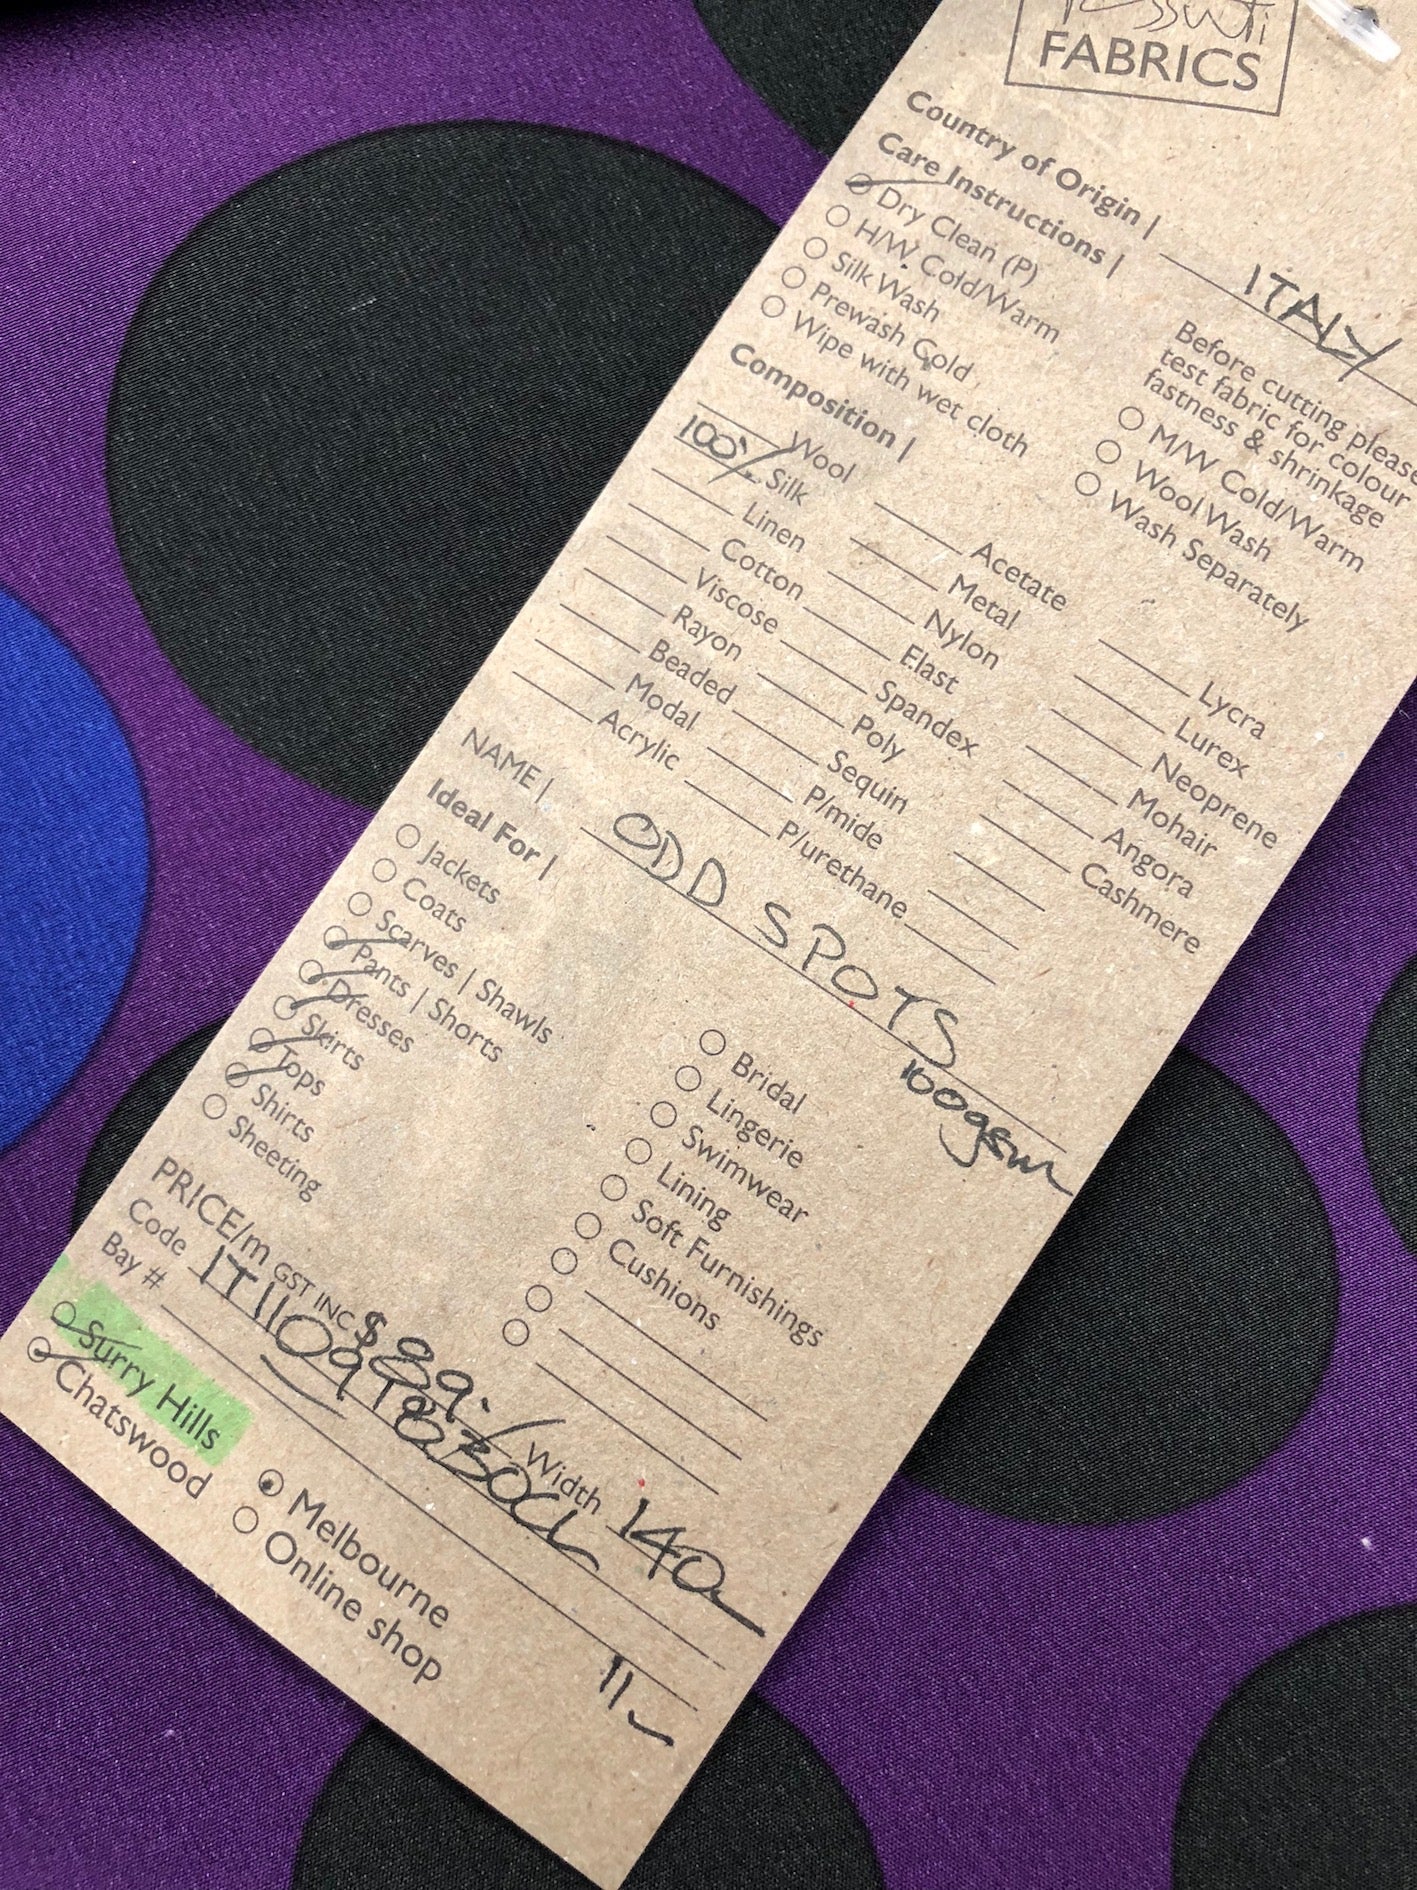 Tessuti
FABRICS
Country of Origin | ITALY
Care Instructions |
Dry Clean (P)
H/W Cold/Warm
Silk Wash
Prewash Cold
Wipe with wet cloth
Before cutting please
test fabric for colour
fastness & shrinkage
M/W Cold/Warm
Wool Wash
Wash Separately
Composition |
Wool
100% Silk
Linen
Cotton
Viscose
Rayon
Beaded
Modal
Acrylic
Acetate
Metal
Nylon
Elast
Spandex
Poly
Sequin
P/mide
P/urethane
Lycra
Lurex
Neoprene
Mohair
Angora
Cashmere
NAME | ODD SPOTS
100gsm
Ideal For |
Jackets
Coats
Scarves | Shawls
Pants | Shorts
Dresses
Skirts
Tops
Shirts
Sheeting
Bridal
Lingerie
Swimwear
Lining
Soft Furnishings
Cushions
PRICE/m GST INC $89.- Width 140
Code
Bay # 11
Surry Hills
Chatswood
Melbourne
Online shop